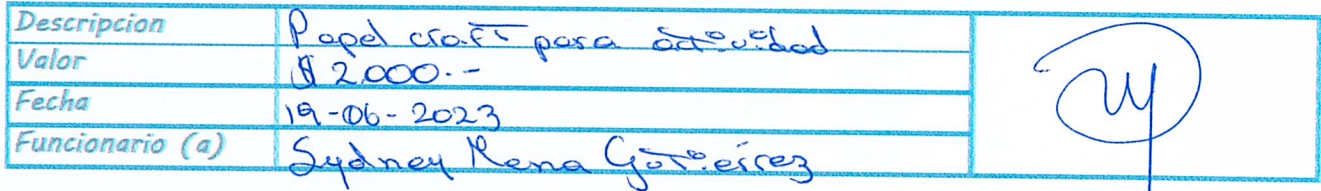 Descripcion Papel craft para actividad
Valor $ 2.000.-
Fecha 19-06-2023
Funcionario (a) Sydney Mena Gutierrez